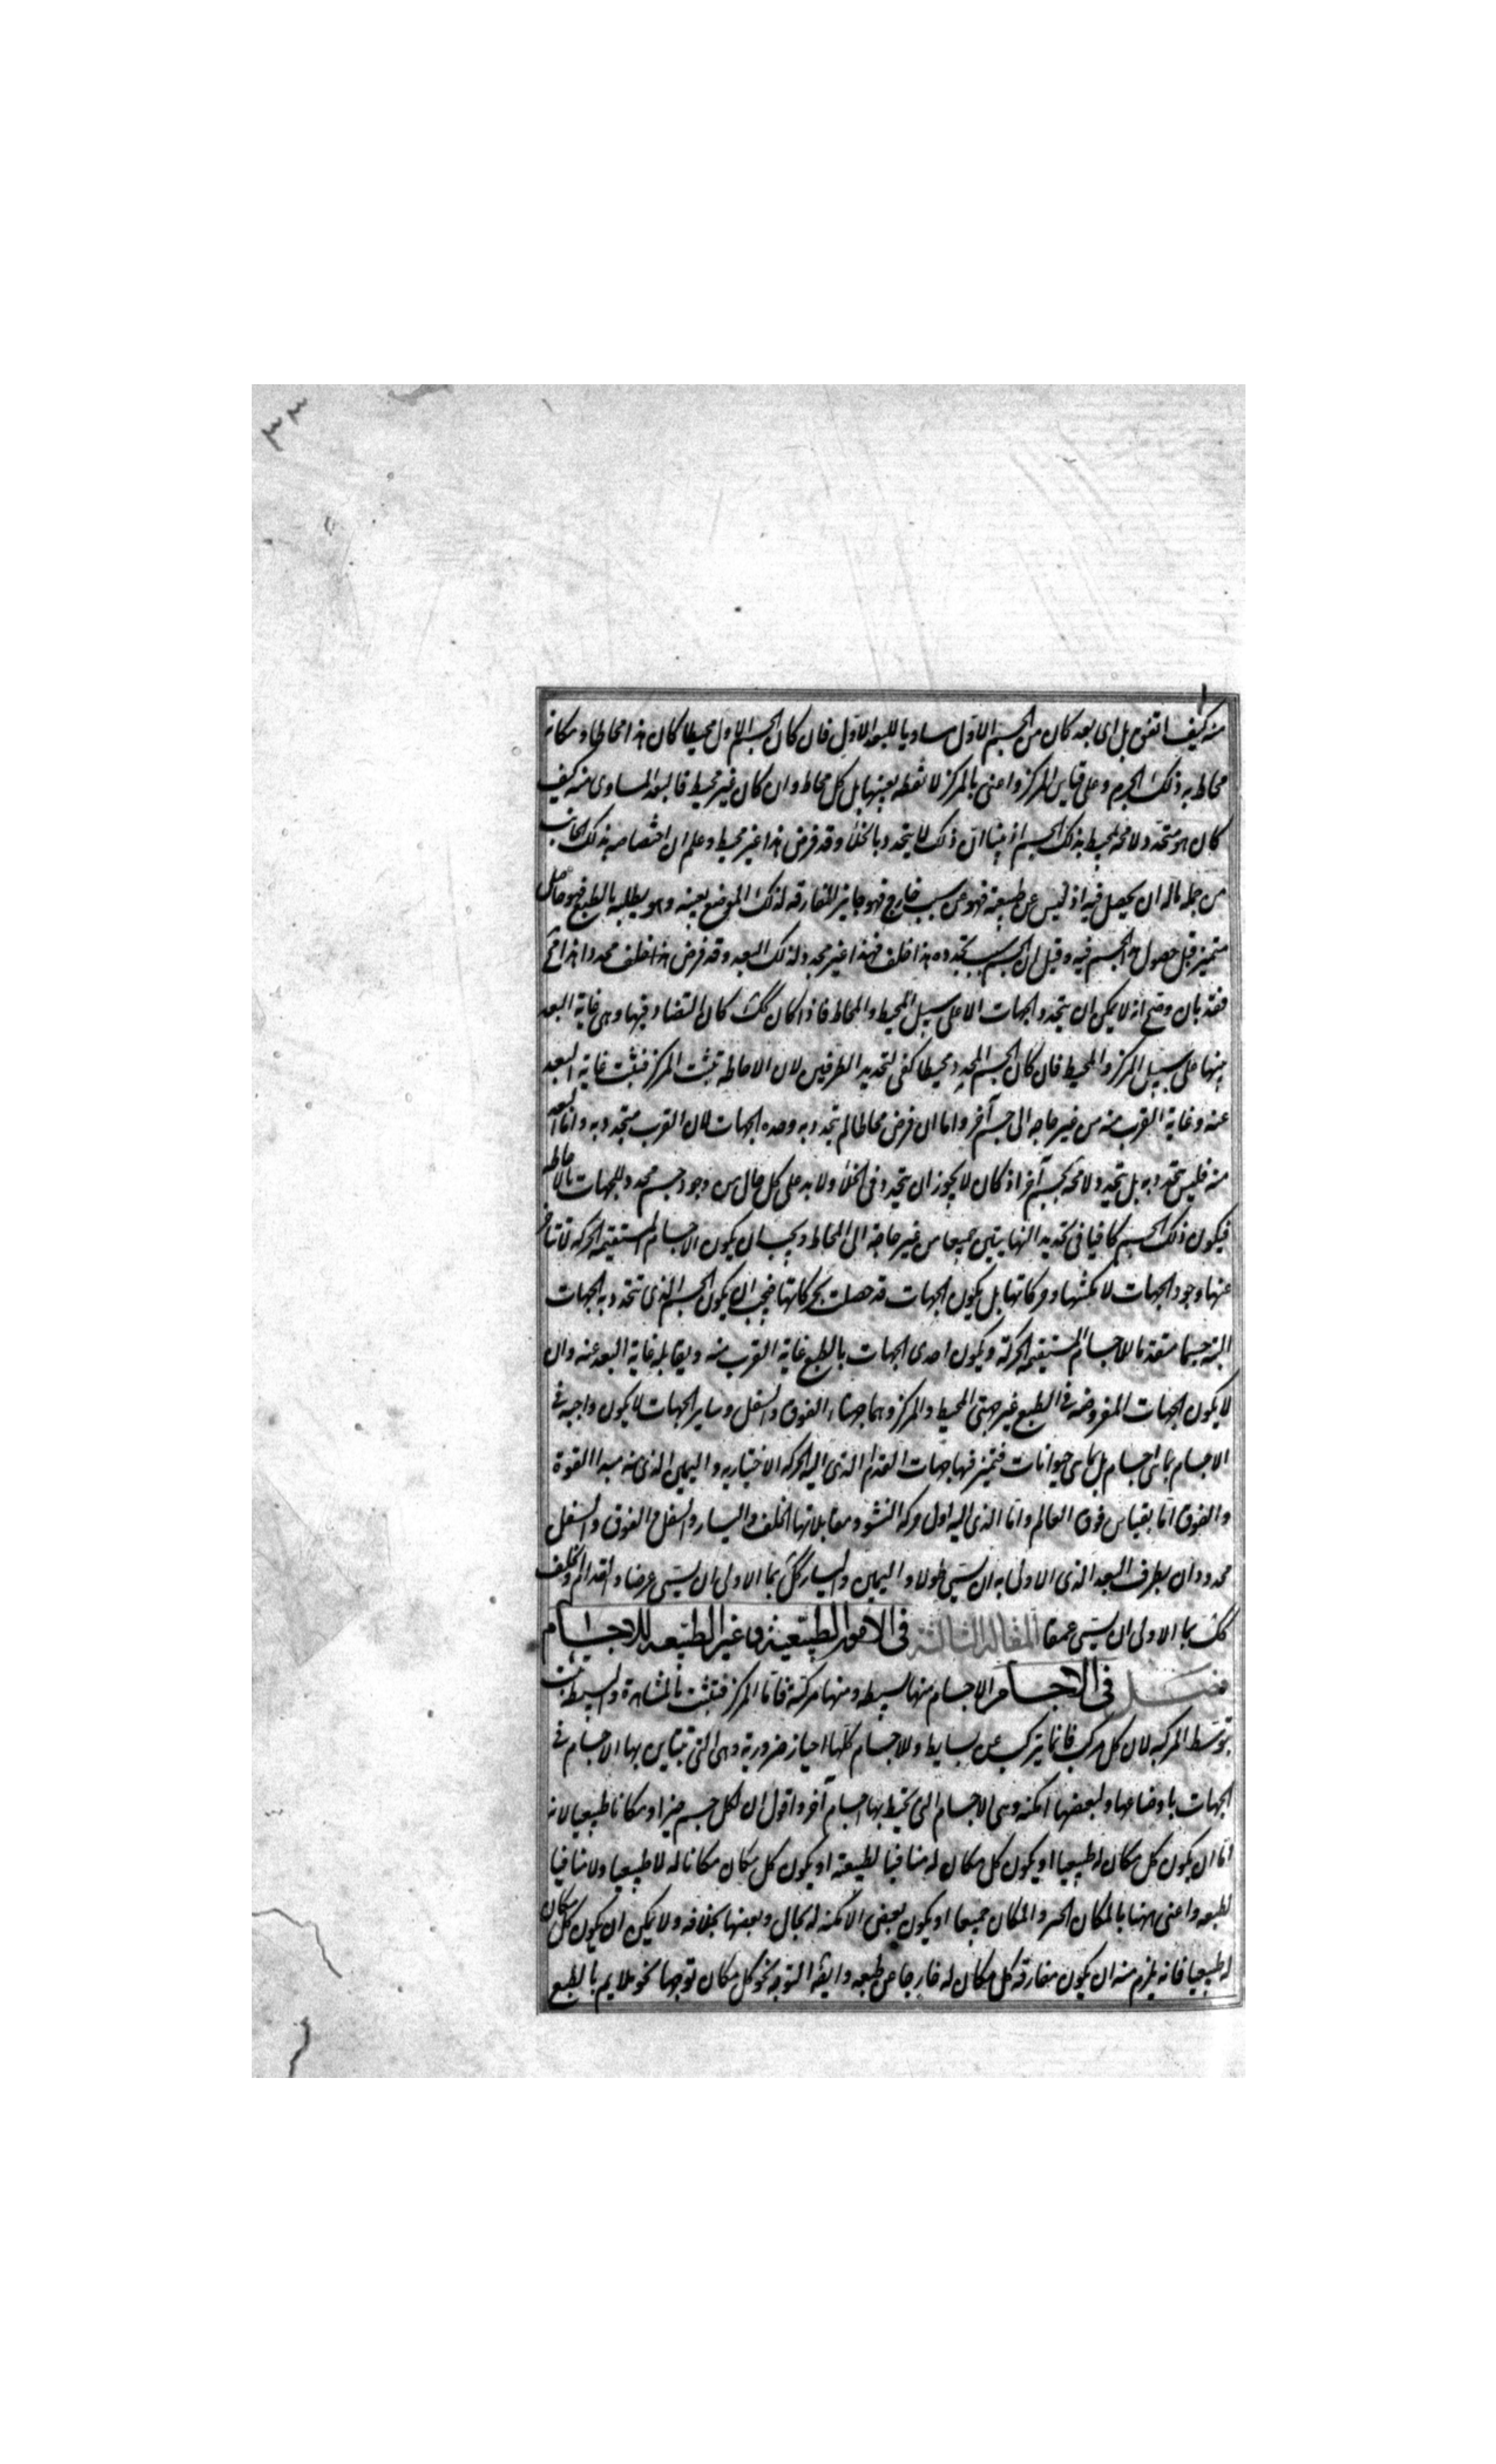 ٣٣
منه كيف اتفق بل اى بعد كان من الجسم الاول مساويا للبعد الاول فان كان الجسم الاول محيطا كان هذا محاطا ومكانه
محاط به ذلك الجرم وعلى قياس المركز واعنى بالمركز لا نقطة بعينها بل كل محاط وان كان غير محيط فالبعد المساوى منه كيف
كان هو متحدد لا محة بمحيط بذلك الجسم اذ بينا ان ذلك لا يتحدد بالخلأ وقد فرض هذا غير محيط وعلم ان اختصاصه بذلك الجانب
من جملة ماله ان يحصل فيه اذ ليس عن طبيعته فهو عن سبب خارج فهو جايز المفارقة لذلك الموضع بعينه وهو يطلبه بالطبع فهو حاصل
متميز قبل حصول هذا الجسم فيه وقيل ان الجسم سبب تحدده هذا خلف فهذا غير محدد لذلك البعد وقد فرض هذا خلف محددا هذا مح
فقد بان وضح انه لا يمكن ان يتحدد الجهات الا على سبيل المحيط والمحاط فاذا كان كك كان التضاد فيها وهى غاية البعد
بينها على سبيل المركز والمحيط فان كان الجسم المحدد محيطا كفى لتحديد الطرفين لان الاحاطة تثبت المركز فثبت غاية البعد
عنه وغاية القرب منه من غير حاجة الى جسم آخر واما ان فرض محاطا لم تتحدد به وحده الجهات لان القرب متحدد به واما البعد
منه فليس يتحدد به بل يتحدد لا محة بجسم آخر اذ كان لا يجوز ان يتحدد فى الخلأ ولا بد على كل حال من وجود جسم محدد للجهات بالاحاطة
فيكون ذلك الجسم كافيا فى تحديد النهايتين جميعا من غير حاجة الى المحاط ويجب ان يكون الاجسام المستقيمة الحركة لا تتاخر
عنها وجود الجهات لامكنتها وحركاتها بل يكون الجهات قد حصلت بحركاتها فيجب ان يكون الجسم الذى تتحدد به الجهات
البتة جسما متقدما للاجسام المستقيمة الحركة ويكون احدى الجهات بالطبع غاية القرب منه ويقابله غاية البعد عنه وان
لا يكون الجهات المفروضة فى الطبع غير جهتى المحيط والمركز وهما جهتا الفوق والسفل وساير الجهات لا يكون واجبة فى
الاجسام بما هى اجسام بل بما هى حيوانات فتميز فيها جهات القدام الذى اليه الحركة الاختيارية واليمين الذى منه مبدا القوة
والفوق اما بقياس فوق العالم واما الذى اليه اول حركة النشو ومقابلاتها الخلف واليسار والسفل والفوق والسفل
محدودان بطرف البعد الذى الاولى به ان يسمى طولا واليمين واليسار كك بما الاولى ان يسمى عرضا والقدام والخلف
كك بما الاولى ان يسمى عمقا المقالة الثالثة فى الامور الطبيعية وغير الطبيعه للاجسام
فصل فى الاجسام الاجسام منها بسيطه ومنها مركبة فاما المركبة فتثبت بالمشاهدة والبسيطه تثبت
بتوسط المركبه لان كل مركب فانما يتركب عن بسايط وللاجسام كلها احياز ضرورية وهى التى تتباين بها الاجسام فى
الجهات باوضاعها ولبعضها امكنه وهى الاجسام التى تحيط بها اجسام آخر واقول ان لكل جسم حيزا ومكانا طبيعيا لانه
اما ان يكون كل مكان له طبيعيا او يكون كل مكان له منافيا لطبيعته او يكون كل مكان مكانا له لا طبيعيا ولا منافيا
لطبعه واعنى ههنا بالمكان الحيز والمكان جميعا او يكون بعض الامكنة له بحال وبعضها بخلافه ولا يمكن ان يكون كل مكان
له طبيعيا فانه يلزم منه ان يكون مفارقة كل مكان له خارجا عن طبعه وايضا التوجه نحو كل مكان توجها نحو ملايم بالطبع